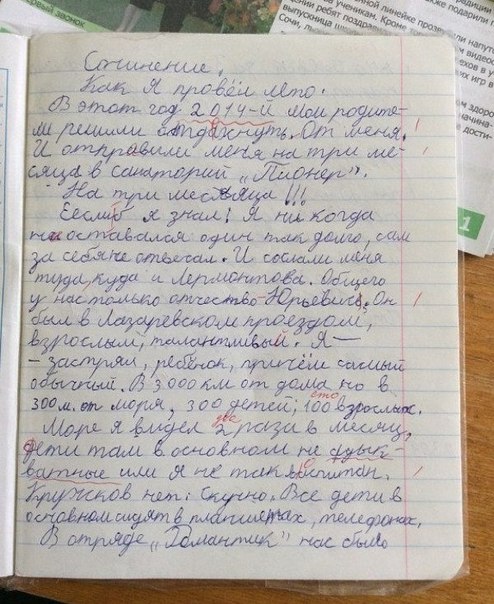 рвый звонок
Сочинение.
Как я провёл лето.
В этот год 2014-й мои родите-
ли решили отдохнуть. От меня.
И отправили меня на три ме-
сяца в санаторий „Пионер".
На три месяца!!!
Если б я знал! Я ни когда
не оставался один так долго, сам
за себя не отвечал. И сослали меня
туда, куда и Лермонтова. Общего
у нас только отчество - Юрьевич. Он
был в Лазаревском проездом,
взрослый, талантливый. Я —
— застрял, ребёнок, причём самый
обычный. В 3000 км от дома но в
сто
300 м. от моря, 300 детей, 100 взрослых.
два
Море я видел 2 раза в месяц,
дети там в основном не адык-
ватные или я не так воспитан.
Кружков нет. Скучно. Все дети в
основном сидят в планшетах, телефонах.
В отряде „Романтик" нас было
1